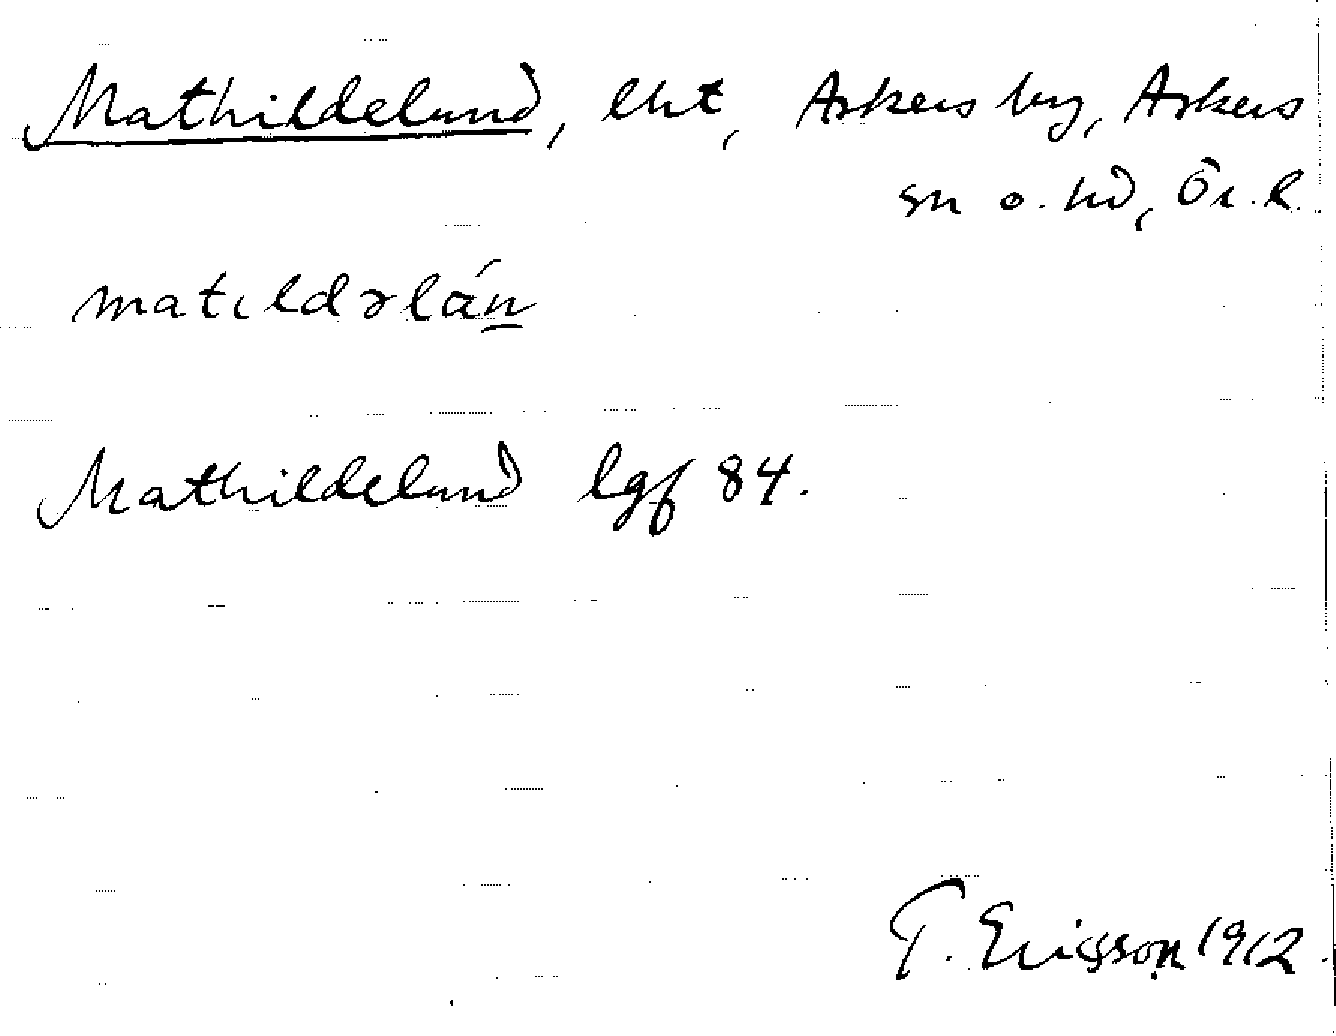 Mathildelund, lht, Askers by, Askers
sn o. hd, Ör. l.
matıldəlán
Mathildelund lgf 84.
T. Ericsson 1912.